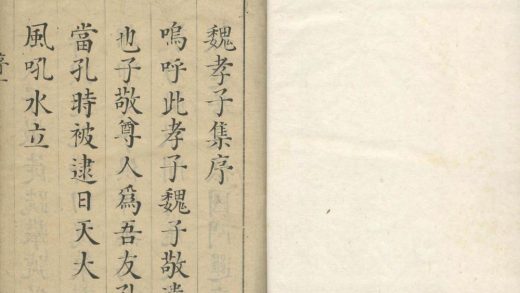 魏孝子集序
嗚呼此孝子魏子敬遺
也子敬尊人為吾友孔
當孔時被逮日天大
風吼水立
序